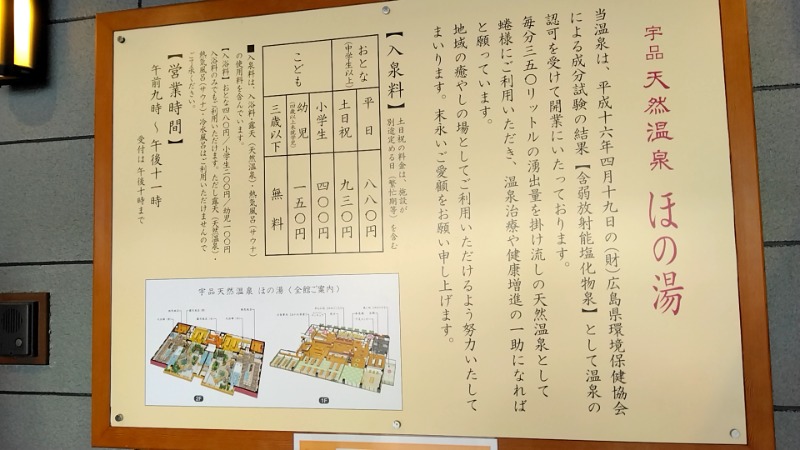 宇品 天然温泉 ほの湯
当温泉は、平成十六年四月十九日の(財)広島県環境保健協会
による成分試験の結果【含弱放射能塩化物泉】として温泉の
認可を受けて開業にいたっております。
毎分三五〇リットルの湧出量を掛け流しの天然温泉として
皆様にご利用いただき、温泉治療や健康増進の一助になれば
と願っています。
地域の癒やしの場としてご利用いただけるよう努力いたして
まいります。末永いご愛顧をお願い申し上げます。
【入泉料】
土日祝の料金は、施設が
別途定める日(繁忙期等)を含む
おとな
(中学生以上)
平日
八八〇円
土日祝
九三〇円
こども
小学生
四〇〇円
幼児
(四歳以上未就学児)
一五〇円
三歳以下
無料
■入泉料は、入浴料・露天(天然温泉)・熱気風呂(サウナ)
の使用料を含んでいます。
【入浴料】おとな四八〇円/小学生二〇〇円/幼児一〇〇円
入浴料のみでもご利用いただけます。ただし露天(天然温泉)・
熱気風呂(サウナ)・冷水風呂はご利用いただけませんので
ご了承ください。
【営業時間】
午前九時〜午後十一時
受付は午後十時まで
宇品天然温泉 ほの湯(全館ご案内)
2F
1F